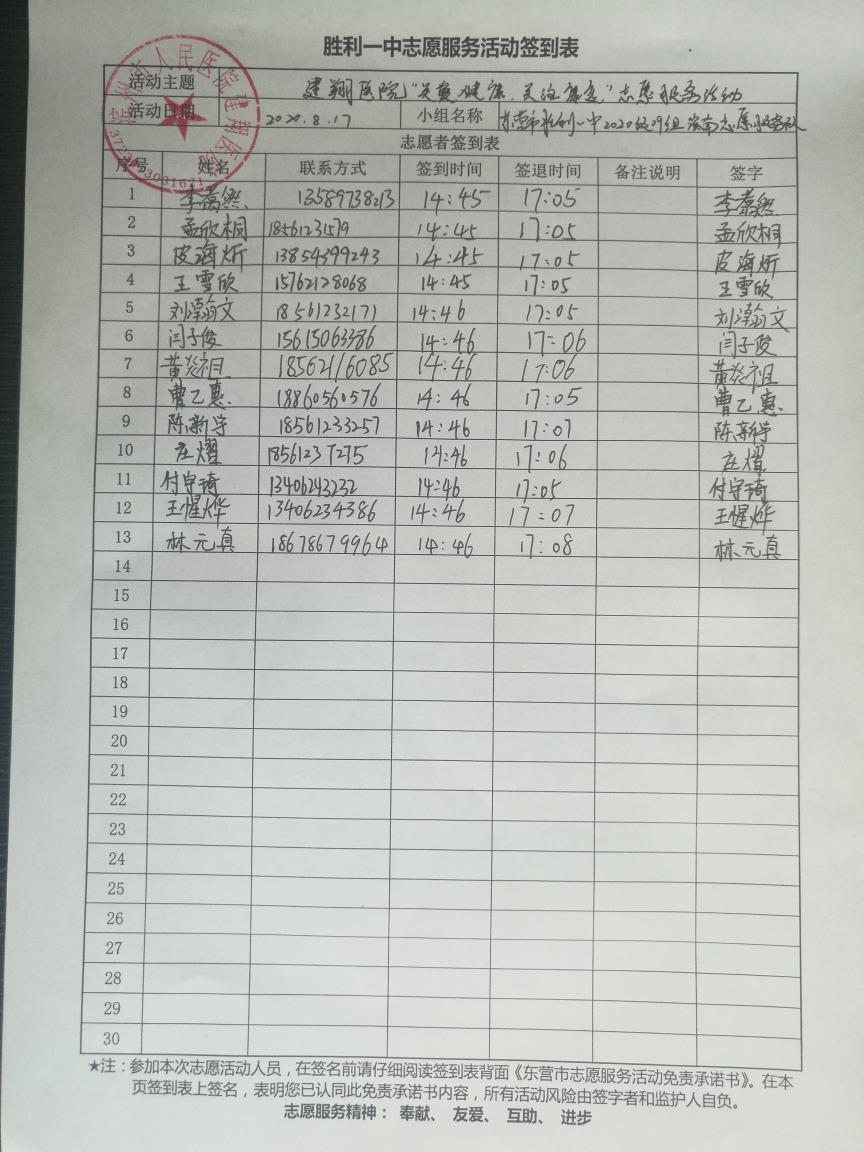 胜利一中志愿服务活动签到表
活动主题 建翔医院"关爱健康.关注康复"志愿服务活动
活动日期 2020.8.17 小组名称 东营市胜利一中2020级 志愿服务队
志愿者签到表
序号 姓名 联系方式 签到时间 签退时间 备注说明 签字
1 李蕴然 13589738213 14:45 17:05 李蕴然
2 孟欣桐 18561231579 14:45 17:05 孟欣桐
3 皮海炘 13854399243 14:45 17:05 皮海炘
4 王雪欣 15762128068 14:45 17:05 王雪欣
5 刘瀚文 18561232171 14:46 17:05 刘瀚文
6 闫子俊 15615063386 14:46 17:06 闫子俊
7 黄炎祖 18562116085 14:46 17:06 黄炎祖
8 曹乙惠 18860560576 14:46 17:05 曹乙惠
9 陈新宇 18561233257 14:46 17:07 陈新宇
10 庄熠 18561237275 14:46 17:06 庄熠
11 付守琦 13406243232 14:46 17:05 付守琦
12 王惺烨 13406234386 14:46 17:07 王惺烨
13 林元真 18678679964 14:46 17:08 林元真
14
15
16
17
18
19
20
21
22
23
24
25
26
27
28
29
30
★注：参加本次志愿活动人员，在签名前请仔细阅读签到表背面《东营市志愿服务活动免责承诺书》。在本
页签到表上签名，表明您已认同此免责承诺书内容，所有活动风险由签字者和监护人自负。
志愿服务精神： 奉献、 友爱、 互助、 进步